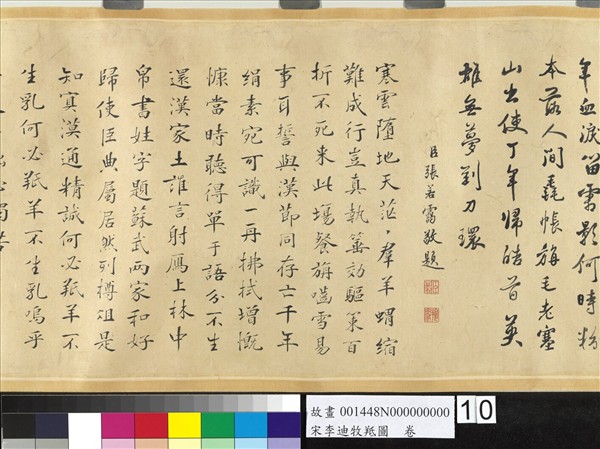 年血淚留雲影何時粉
本落人間毳帳旃毛老塞
山出使丁年歸皓首英
雄無夢到刀環
臣張若靄敬題
寒雲墮地天茫々羣羊蝟縮
難成行豈真執箠効驅策百
折不死来此場餐旃嚙雪易
事耳誓與漢節同存亡千年
絹素宛可識一再拂拭增慨
慷當時聽得單于語分不生
還漢家土誰言射鴈上林中
帛書姓字題蘇武兩家和好
歸使臣典屬居然列樽俎是
知寞漠通精誠何必羝羊不
生乳何必羝羊不生乳嗚乎
故畫 001448N000000000
宋李迪牧羝圖 卷
10